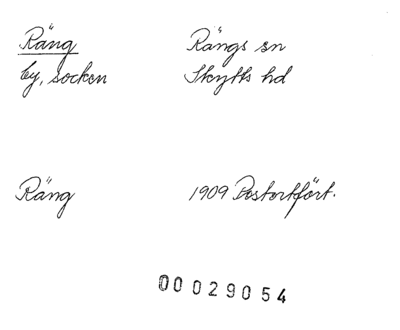 Räng Rängs sn
by, socken Skytts hd
Räng 1909 Postortfört.
00029054